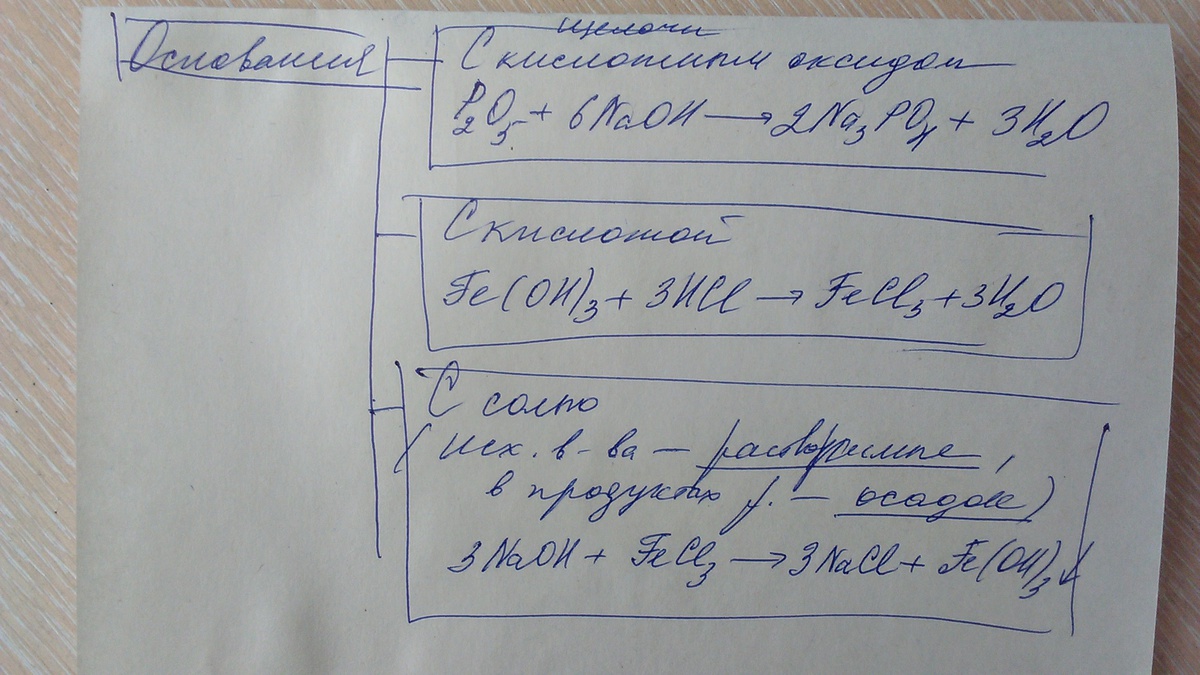 Основания
щелочи
С кислотным оксидом
P₂O₅ + 6NaOH → 2Na₃PO₄ + 3H₂O
С кислотой
Fe(OH)₃ + 3HCl → FeCl₃ + 3H₂O
С солью
(исх. в-ва – растворимые,
в продуктах р. – осадок)
3NaOH + FeCl₃ → 3NaCl + Fe(OH)₃↓